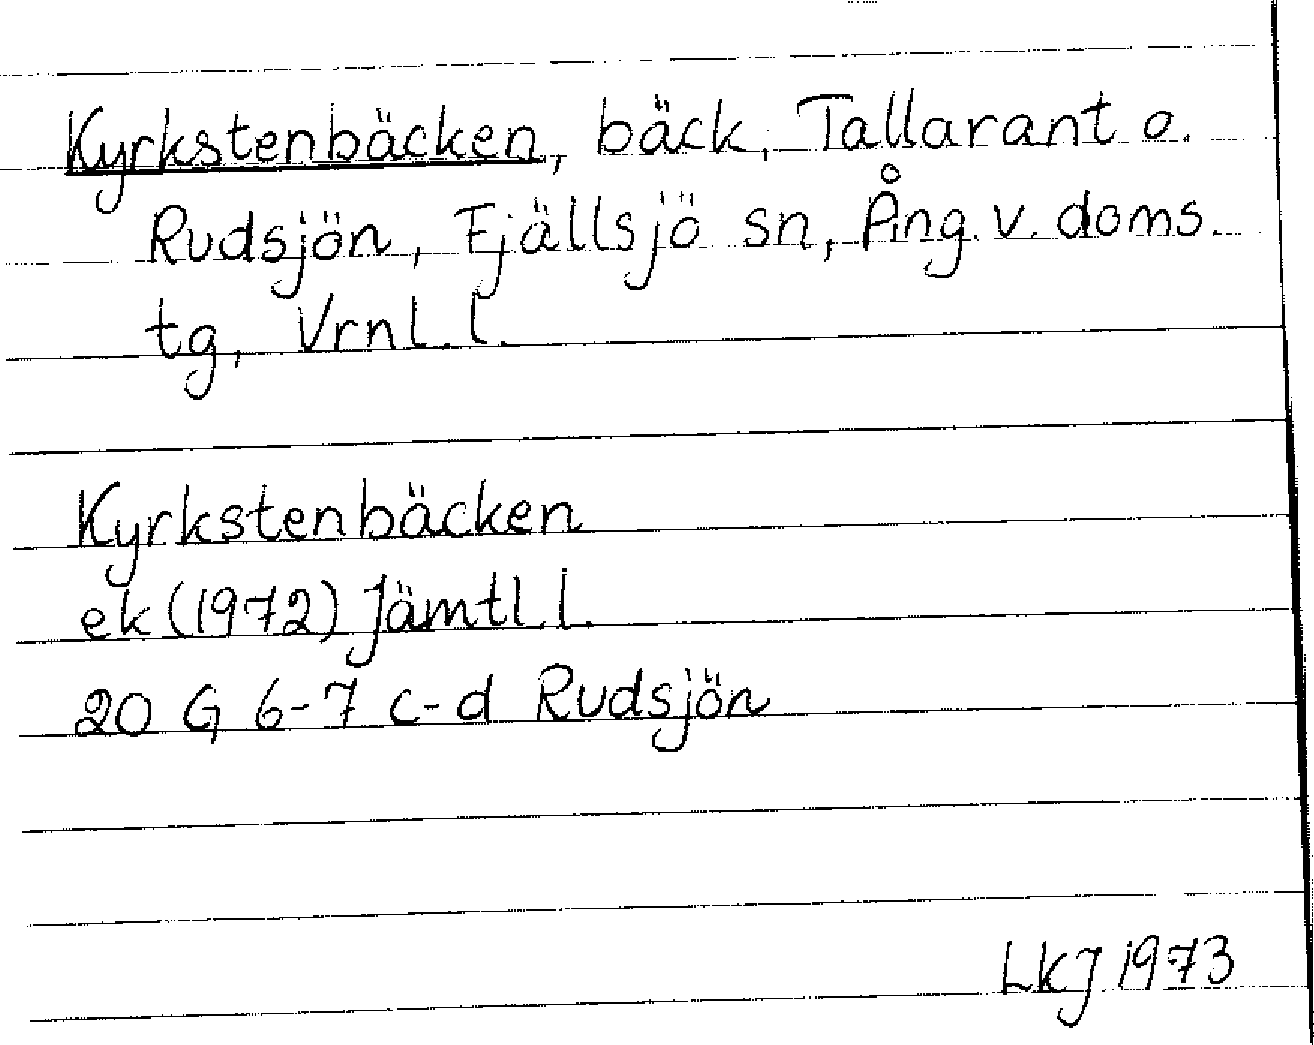 Kyrkstenbäcken, bäck, Tallarant o.
Rudsjön, Fjällsjö sn, Ång. v. doms.
tg, Vrnl. l.
Kyrkstenbäcken
ek (1972) Jämtl. l.
20 G 6-7 c-d Rudsjön
LKJ 1973